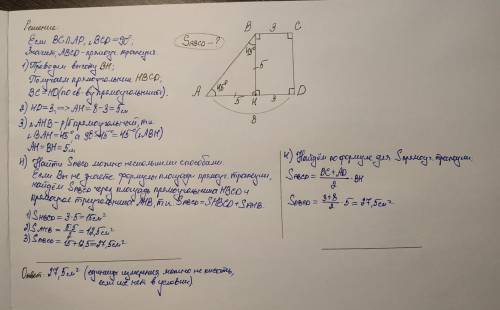 Решение:
Если BC∥AD, ∠BCD = 90°,
Значит, ABCD - прямоуг. трапеция.
1) Проведём высоту BH;
Получаем прямоугольник HBCD,
BC = HD (по св-ву прямоугольника).
2) HD = 3, => AH = 8-3 = 5см
3) △AHB - р/б прямоугольный, т.к.
∠BAH = 45°, а 90°-45° = 45° (∠ABH)
AH = BH = 5см
4) Найти SABCD можно несколькими способами.
Если Вы не знаете формулы площади прямоуг. трапеции,
найдём SABCD через площадь прямоугольника HBCD и
прямоуг. треугольника AHB, т.е. SABCD = SHBCD + SAHB.
1) SHBCD = 3·5 = 15см²
2) SAHB = 5·5/2 = 12,5см²
3) SABCD = 15+12,5 = 27,5см²
Ответ: 27,5см² (единицы измерения можно не писать,
если их нет в условии)
SABCD - ?
B 3 C
45°
5
A 45° 5 H D
8
4) Найдём по формуле для S прямоуг. трапеции.
SABCD = BC + AD / 2 · BH
SABCD = 3+8 / 2 · 5 = 27,5см²